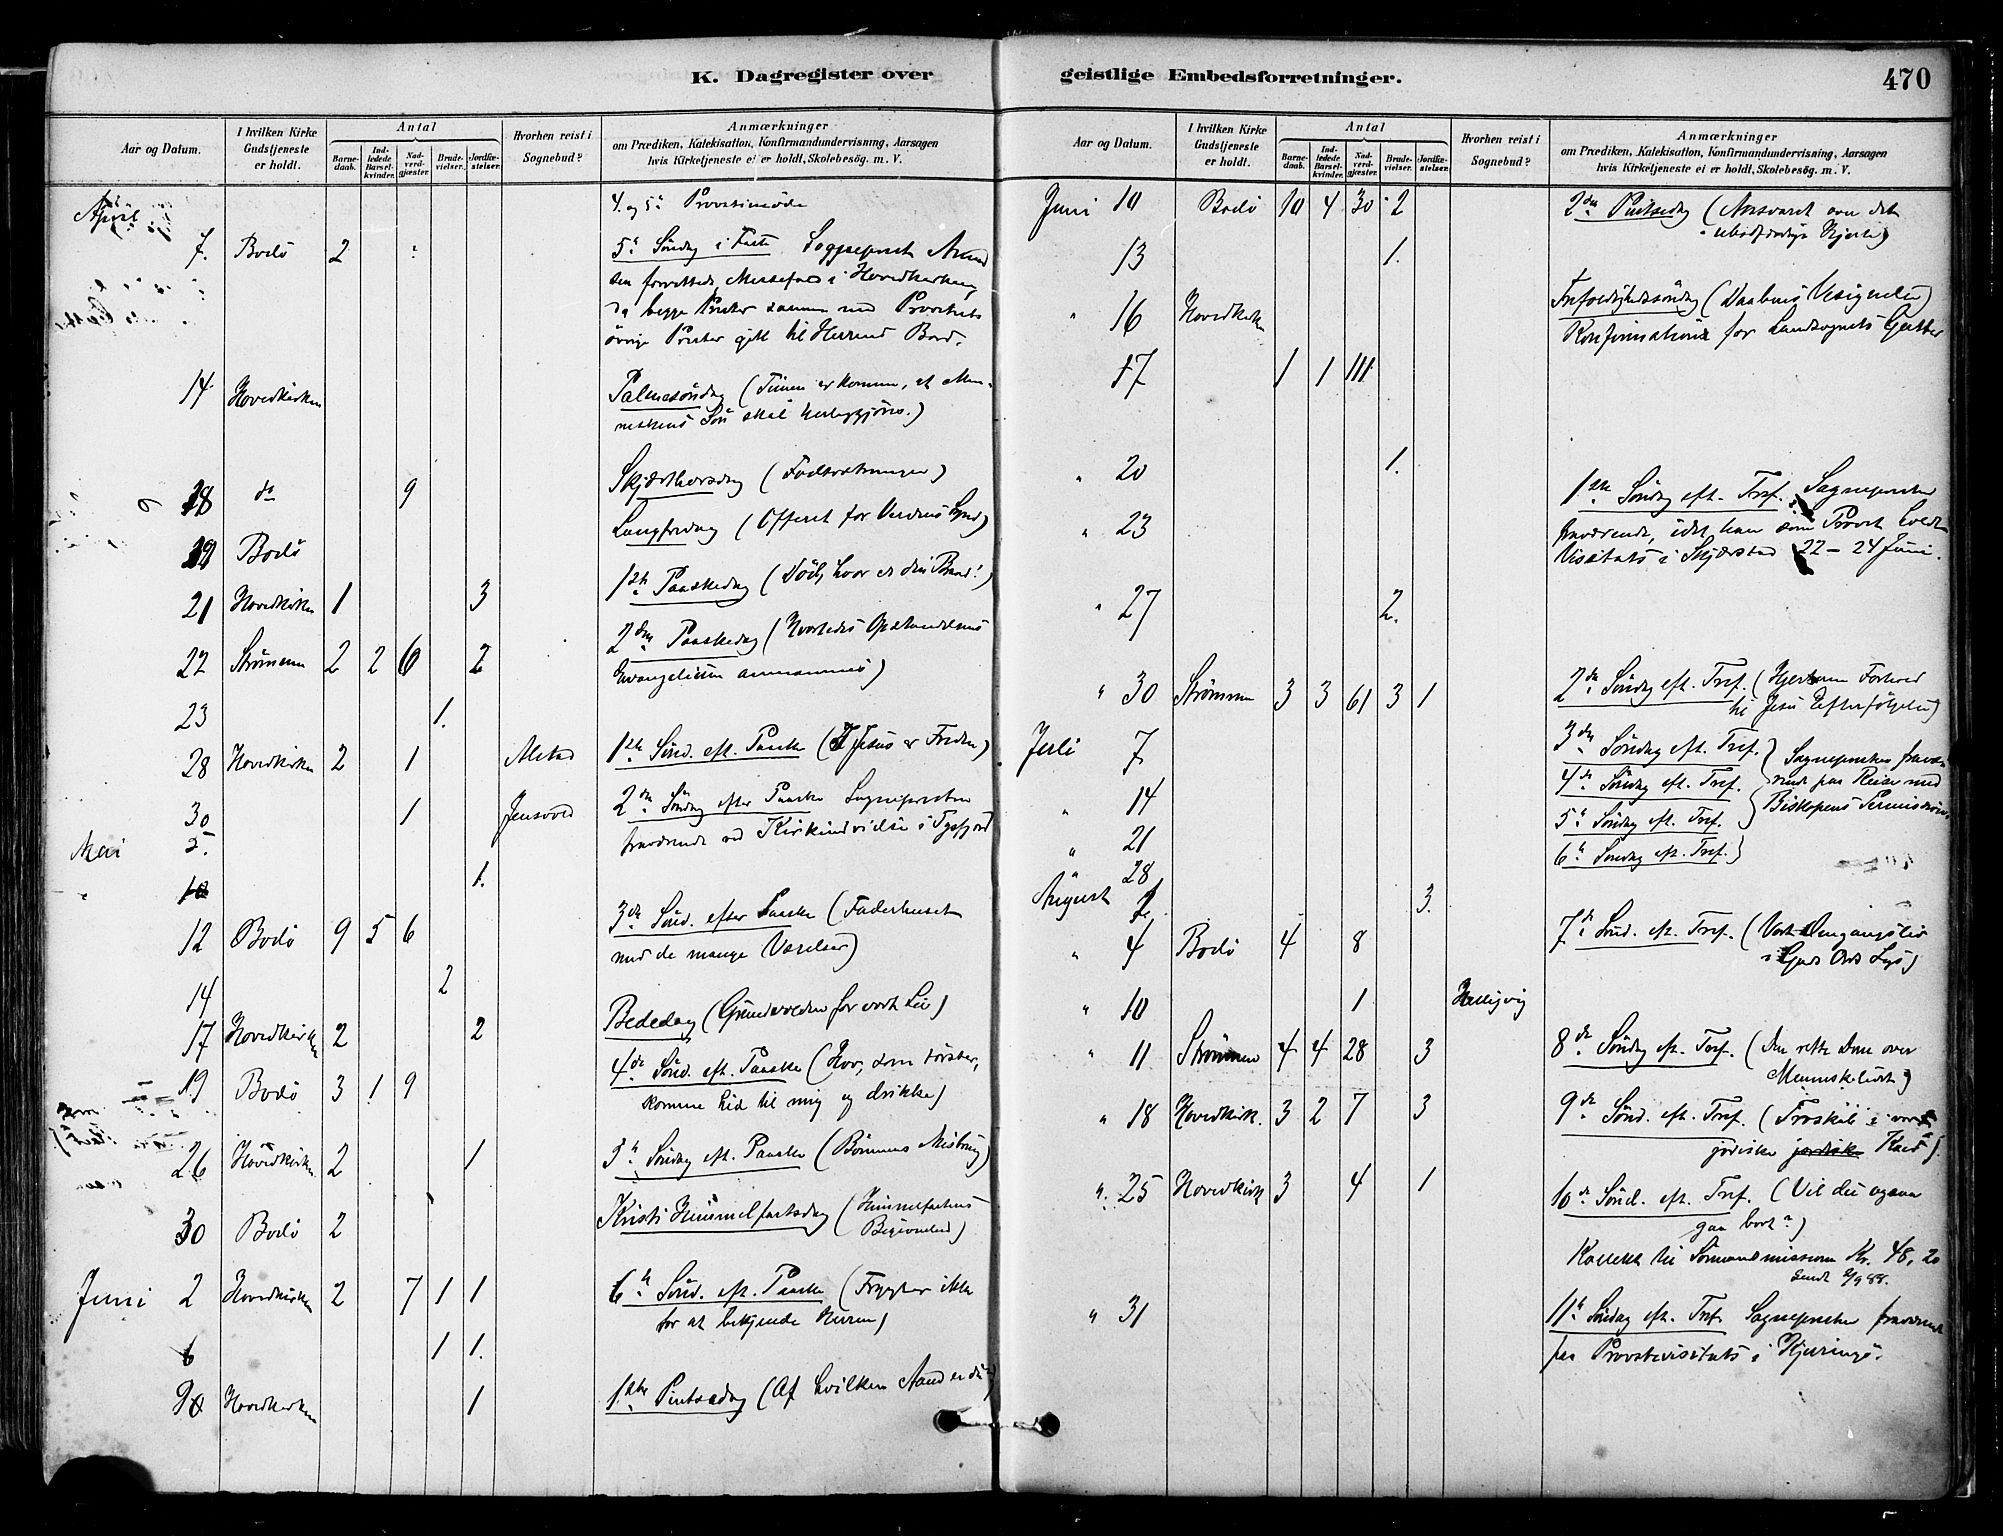 K. Dagregister over geistlige Embedsforretninger.
470
Aar og Datum.
I hvilken Kirke Gudstjeneste er holdt.
Antal
Barnedaab.
Indledede Barselkvinder.
Nadverdgjæster.
Brudevielser.
Jordfæstelser.
Hvorhen reist i Sognebud?
Anmærkninger
om Prædiken, Katekisation, Konfirmandundervisning, Aarsagen
hvis Kirketjeneste ei er holdt, Skolebesøg. m. V.
April 4. og 5. Provstimøde
7. Bodö 2 5te Söndag i Faste Sogneprest
forrettede Messefald i Hovedkirken,
da begge Prester sammen med Provstiets
övrige Prester gik til Herrens Bord.
14 Hovedkirken Palmesöndag (Timen er kommen, at Men-
neskens Sön skal herliggjöres.)
18 do 9 Skjærthorsdag (Fodtvætningen)
Langfredag (Offeret for Verdens Synd)
19 Bodö
21 Hovedkirken 1 3 1ste Paaskedag (Död, hvor er din Brod!)
22 Strömmen 2 2 6 2 2den Paaskedag (Hvorledes Opstandelsens
Evangelium annammes)
23 1.
28 Hovedkirken 2 1 Alstad 1ste Sönd. eft. Paaske (Jesus er Freden)
30 1 Jensvold 2den Söndag efter Paaske Sognepresten
fraværende ved Kirkeindvielse i Tysfjord
Mai 5.
10 1.
12 Bodö 9 5 6 3de Sönd. efter Paaske (Faderhuset
med de mange Værelser)
14 2
17 Hovedkirken 2 2 Bededag (Grundvolden for vort Liv)
19 Bodö 3 1 9 4de Sönd. eft. Paaske (Hver, som törster,
komme hid til mig og drikke)
26 Hovedkirken 2 1 5te Söndag eft. Paaske (Bönnens Misbrug)
30 Bodö 2 Kristi Himmelfartsdag (Himmelfartens
Juni 2 Hovedkirken 2 7 1 1 6te Sönd. eft. Paaske (Frygter ikke
for at bekjende Herren)
6 1 1.
9 Hovedkirken 1 1ste Pintsedag (Af hvilken Aand er du?)
Aar og Datum.
I hvilken Kirke Gudstjeneste er holdt.
Antal
Barnedaab.
Indledede Barselkvinder.
Nadverdgjæster.
Brudevielser.
Jordfæstelser.
Hvorhen reist i Sognebud?
Anmærkninger
om Prædiken, Katekisation, Konfirmandundervisning, Aarsagen
hvis Kirketjeneste ei er holdt, Skolebesøg. m. V.
Juni 10 Bodö 10 4 30 2 2den Pintsedag (Ansvaret over det
ubodfærdige Hjerte)
13 1.
" 16 Hovedkirken Trefoldighedssöndag (Daabens Velsignelse)
Konfirmation for Landsognets Gutter
17 1 1 111
" 20 1.
" 23 1ste Söndag eft. Tref. Sognepresten
fraværende, idet han som Provst holdt
Visitats i Skjærstad 22 – 24 Juni.
" 27 2.
" 30 Strömmen 3 3 61 3 1 2den Söndag eft. Tref. (Hjertern Forhold
til Jesu Efterfölgelse)
Juli 7 3die Söndag eft. Tref.
" 14 4de Söndag eft. Tref.
" 21 5te Söndag eft. Tref.
28 6te Söndag eft. Tref.
Sognepresten fravæ-
rende paa Reise med
Biskopens Permission.
August 1 3.
" 4 Bodö 4 8 7de Sönd. eft. Tref. (Vort Omgangsliv
i Guds Ords Lys)
" 10 1
" 11 Strömmen 4 4 28 3 8de Söndag eft. Tref. (Den rette Dom over
Menneskelivet)
" 18 Hovedkirk. 3 2 7 3 9de Sönd. eft. Tref. (Troskab i vort
jordiske jordiske Kald).
" 25 Hovedkirk 3 4 1 10de Sönd. eft. Tref. (Vil du ogsaa
gaa bort?)
Kollekt til Sömandsmissionen Kr. 48,20
Sendt 2/9 88.
" 31 11te Söndag eft. Tref. Sognepresten fraværende
paa Provstevisitats i Kjerringö.